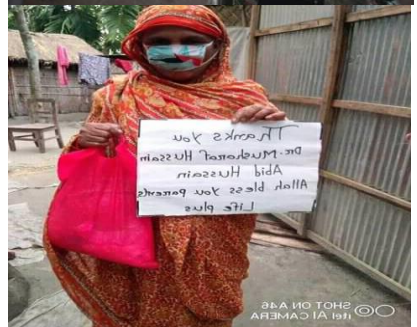 Thanks you
Dr. Musharraf Hussain
Abid Hussain
Allah bless you Parents
Life plus
SHOT ON A46
itel AI CAMERA